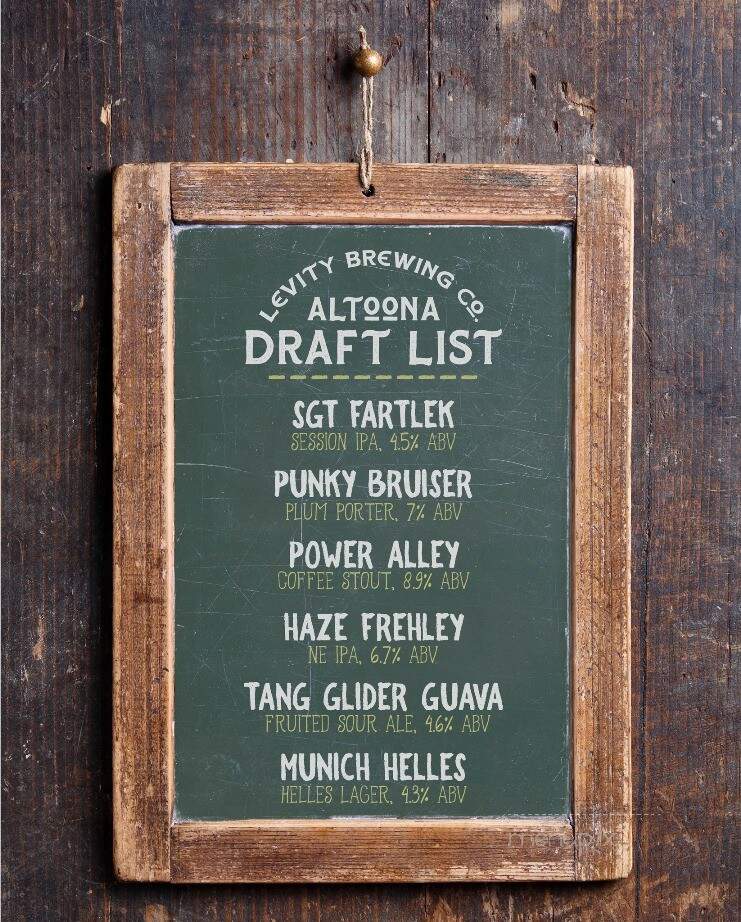 LEVITY BREWING CO.
ALTOONA
DRAFT LIST
SGT FARTLEK
SESSION IPA, 4.5% ABV
PUNKY BRUISER
PLUM PORTER, 7% ABV
POWER ALLEY
COFFEE STOUT, 8.9% ABV
HAZE FREHLEY
NE IPA, 6.7% ABV
TANG GLIDER GUAVA
FRUITED SOUR ALE, 4.6% ABV
MUNICH HELLES
HELLES LAGER, 4.3% ABV